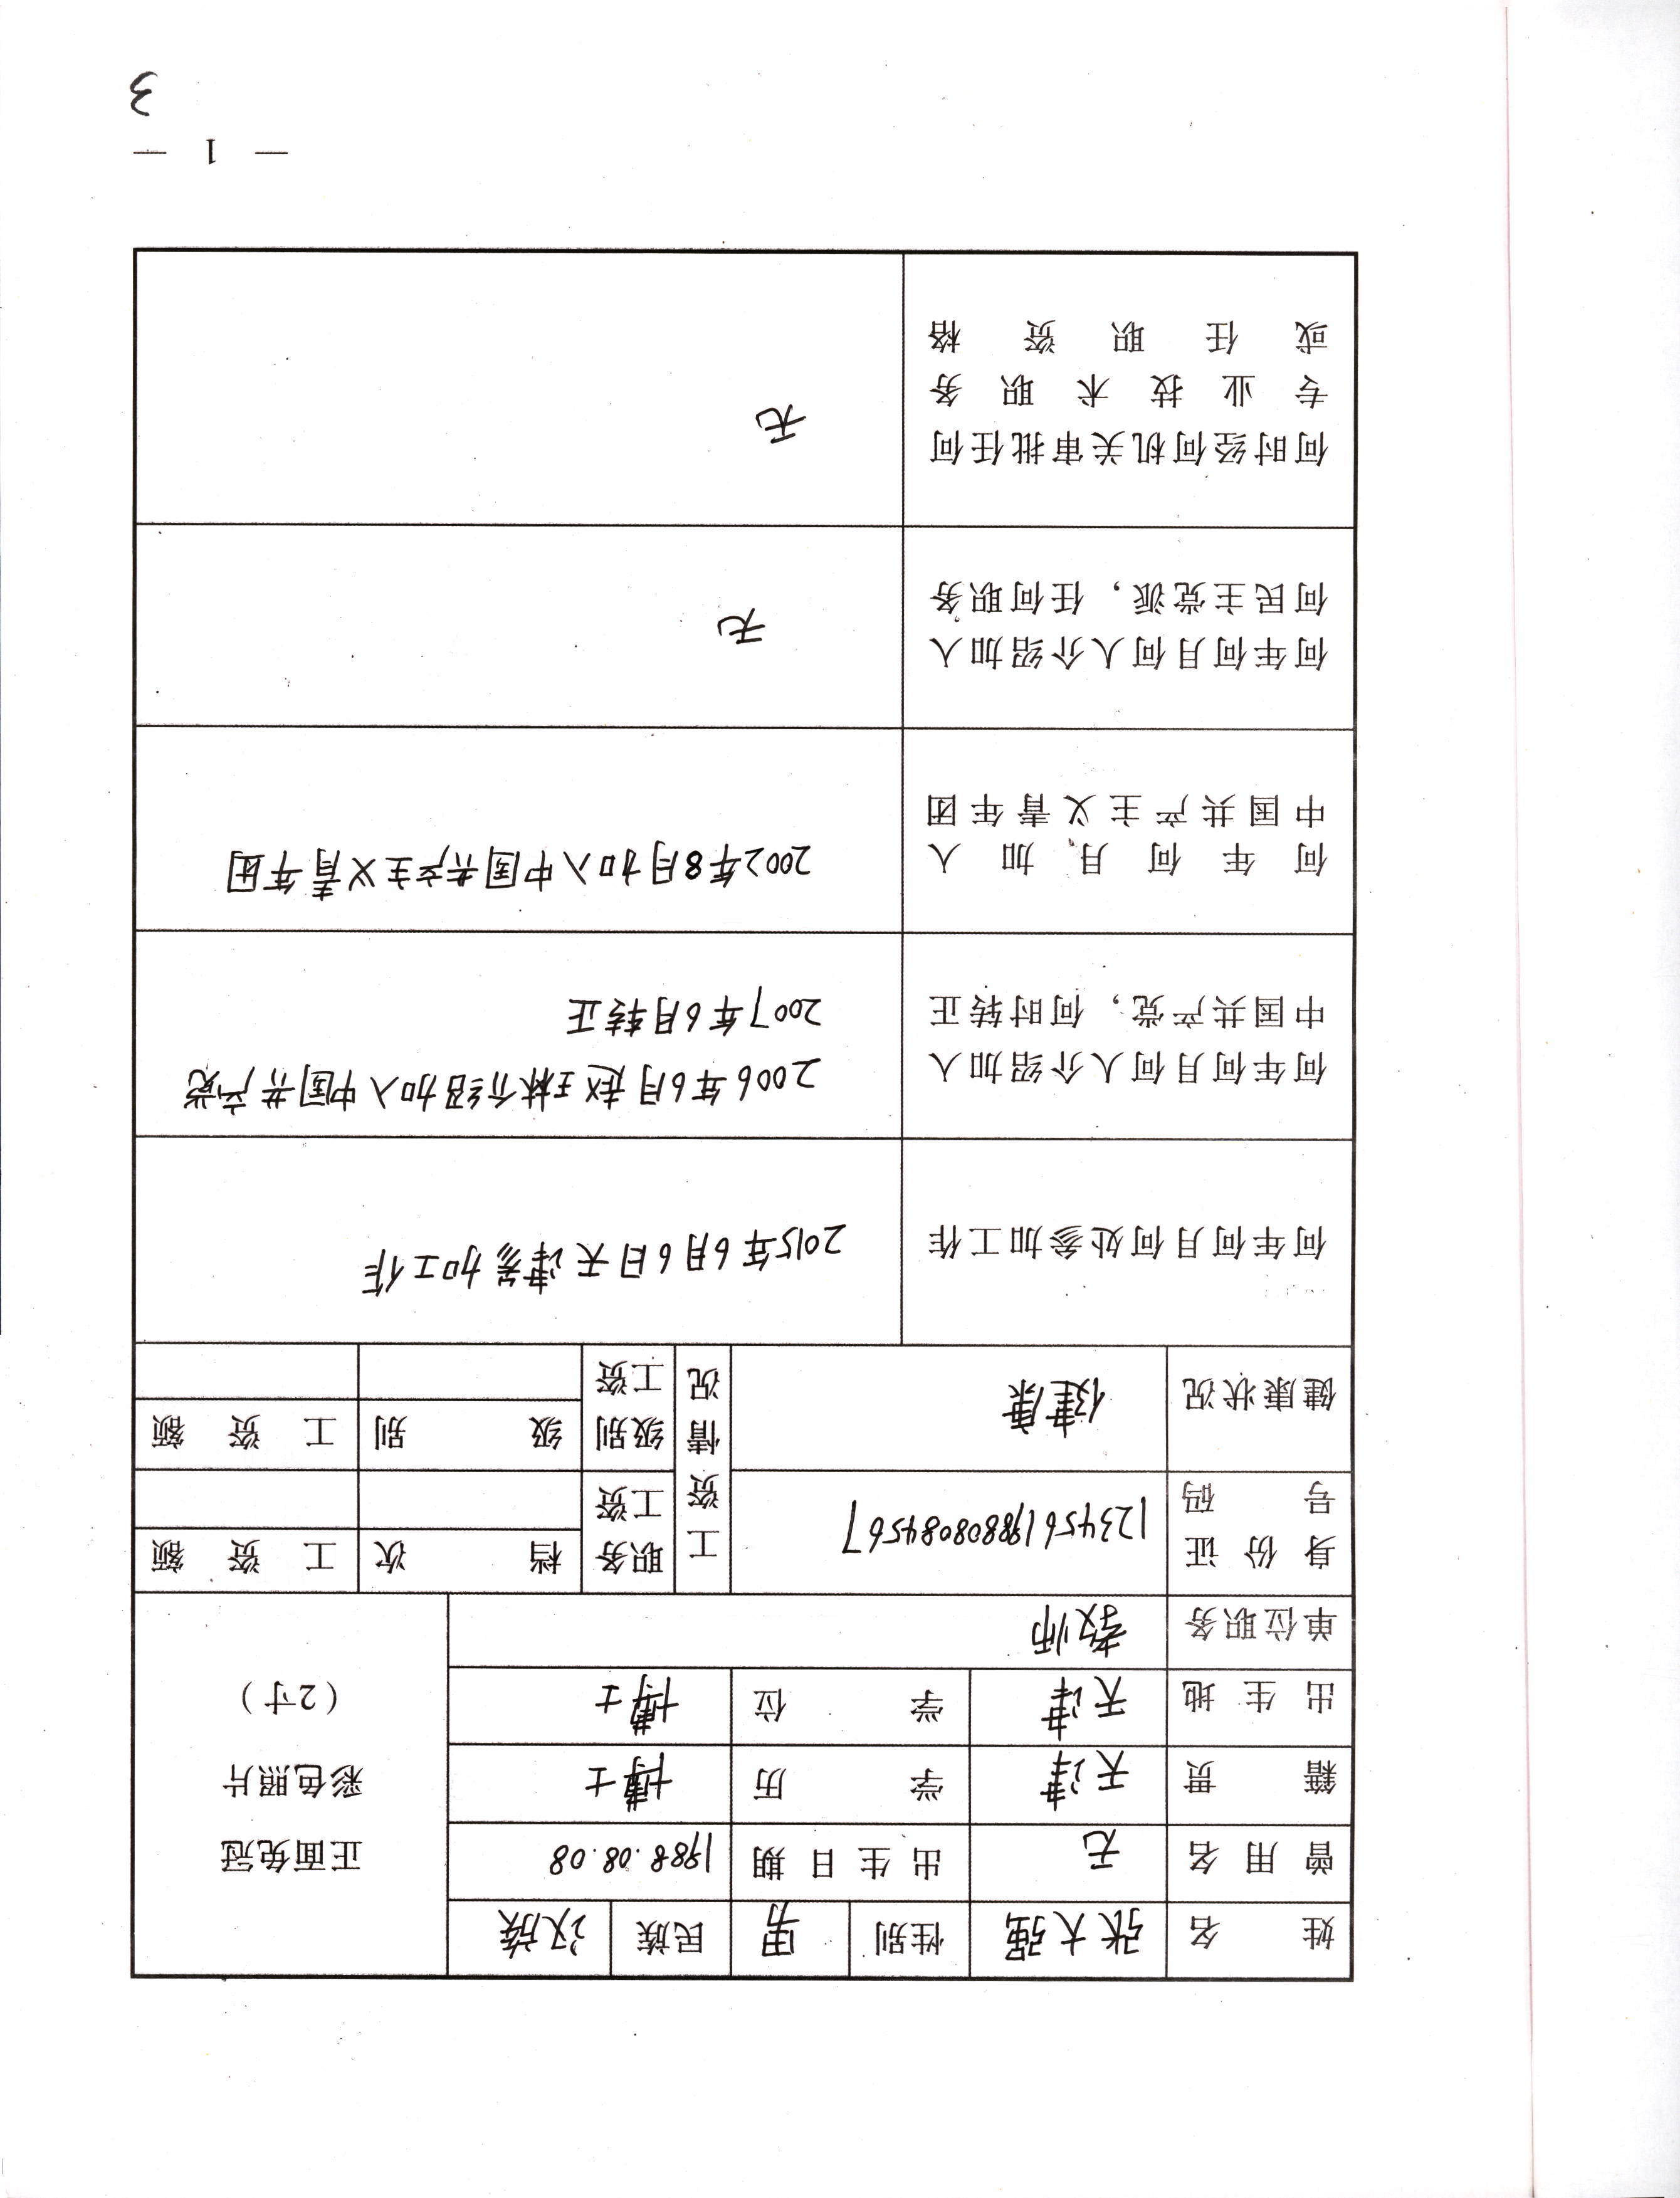 姓名 张大强 性别 男 民族 汉族
曾用名 无 出生日期 1988.08.08
籍贯 天津 学历 博士
出生地 天津 学位 博士
单位职务 教师
正面免冠
彩色照片
（2寸）
身份证
号码
123456198808084567
工资情况
职务
工资
档次 工资额
级别
工资
级别 工资额
健康状况 健康
何年何月何处参加工作
2015年6月6日天津参加工作
何年何月何人介绍加入
中国共产党，何时转正
2006年6月赵琳介绍加入中国共产党
2007年6月转正
何年何月加入
中国共产主义青年团
2002年8月加入中国共产主义青年团
何年何月何人介绍加入
何民主党派，任何职务
无
何时经何机关审批任何
专业技术职务
或任职资格
无
— 1 —
3